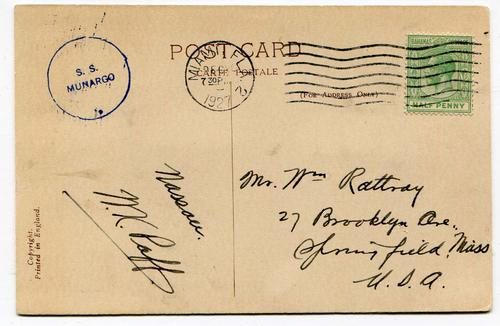 POST CARD
CARTE POSTALE
(FOR ADDRESS ONLY)
S. S.
MUNARGO
MIAMI, FL
DEC
7 30P
1927
2
BAHAMAS
HALF PENNY
Nassau.
W. K.
Mr. Wm Rattray
27 Brooklyn Ave.,
Springfield, Mass
U. S. A.
Copyright.
Printed in England.